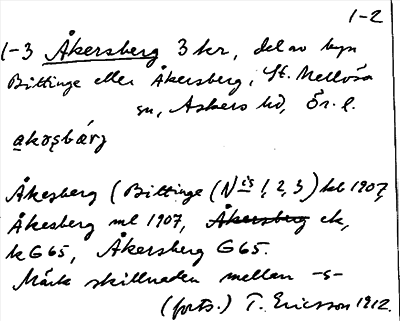 1-2
1-3 Åkersberg 3 kr, del av byn
Bittinge eller Åkersberg, St. Mellösa
sn, Askers hd, Ör. l.
Åkesberg (Bittinge (N is 1, 2, 3) kb 1907,
Åkesberg ml 1907, Åkersberg ek,
k G65, Åkersberg G65.
Märk skillnaden mellan -s-
(forts.) T. Ericsson 1912.